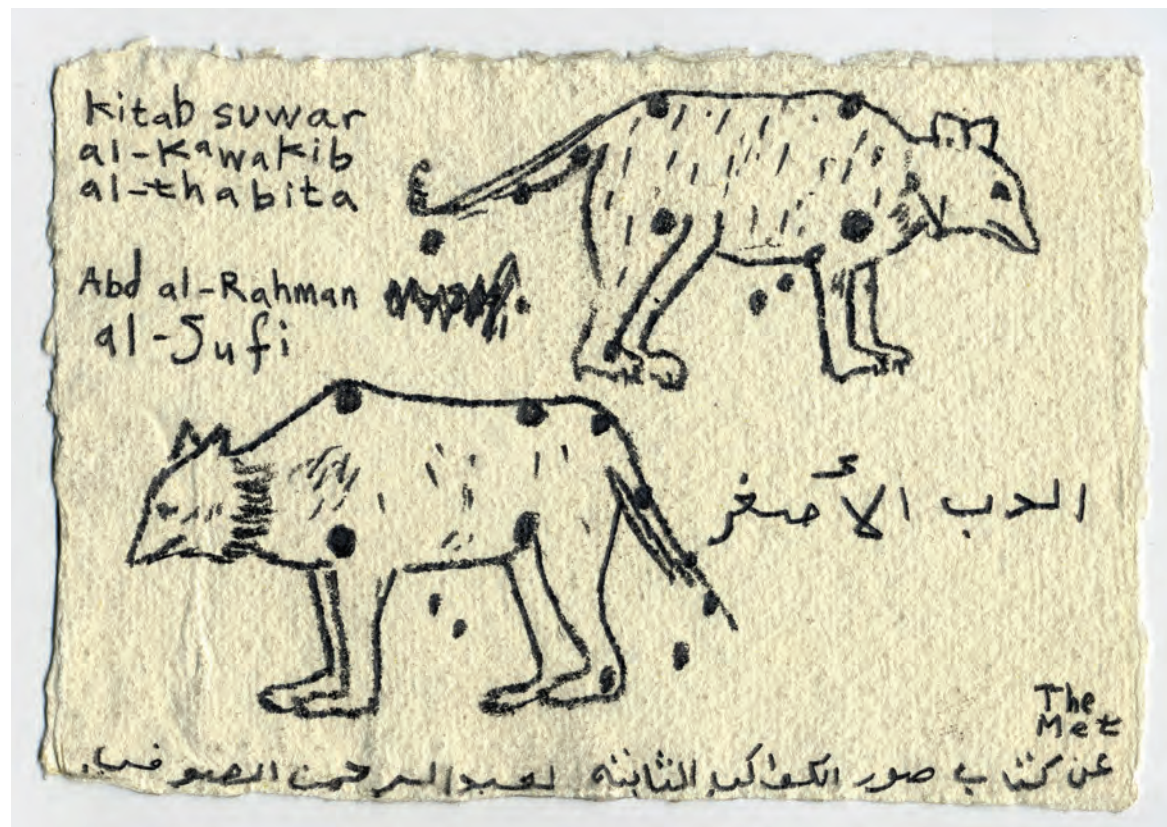 Kitab suwar
al-Kawakib
al-thabita
Abd al-Rahman
al-Sufi
الدب الأصغر
The
Met
عن كتاب صور الكواكب الثابته لعبد الرحمن الصوفي.